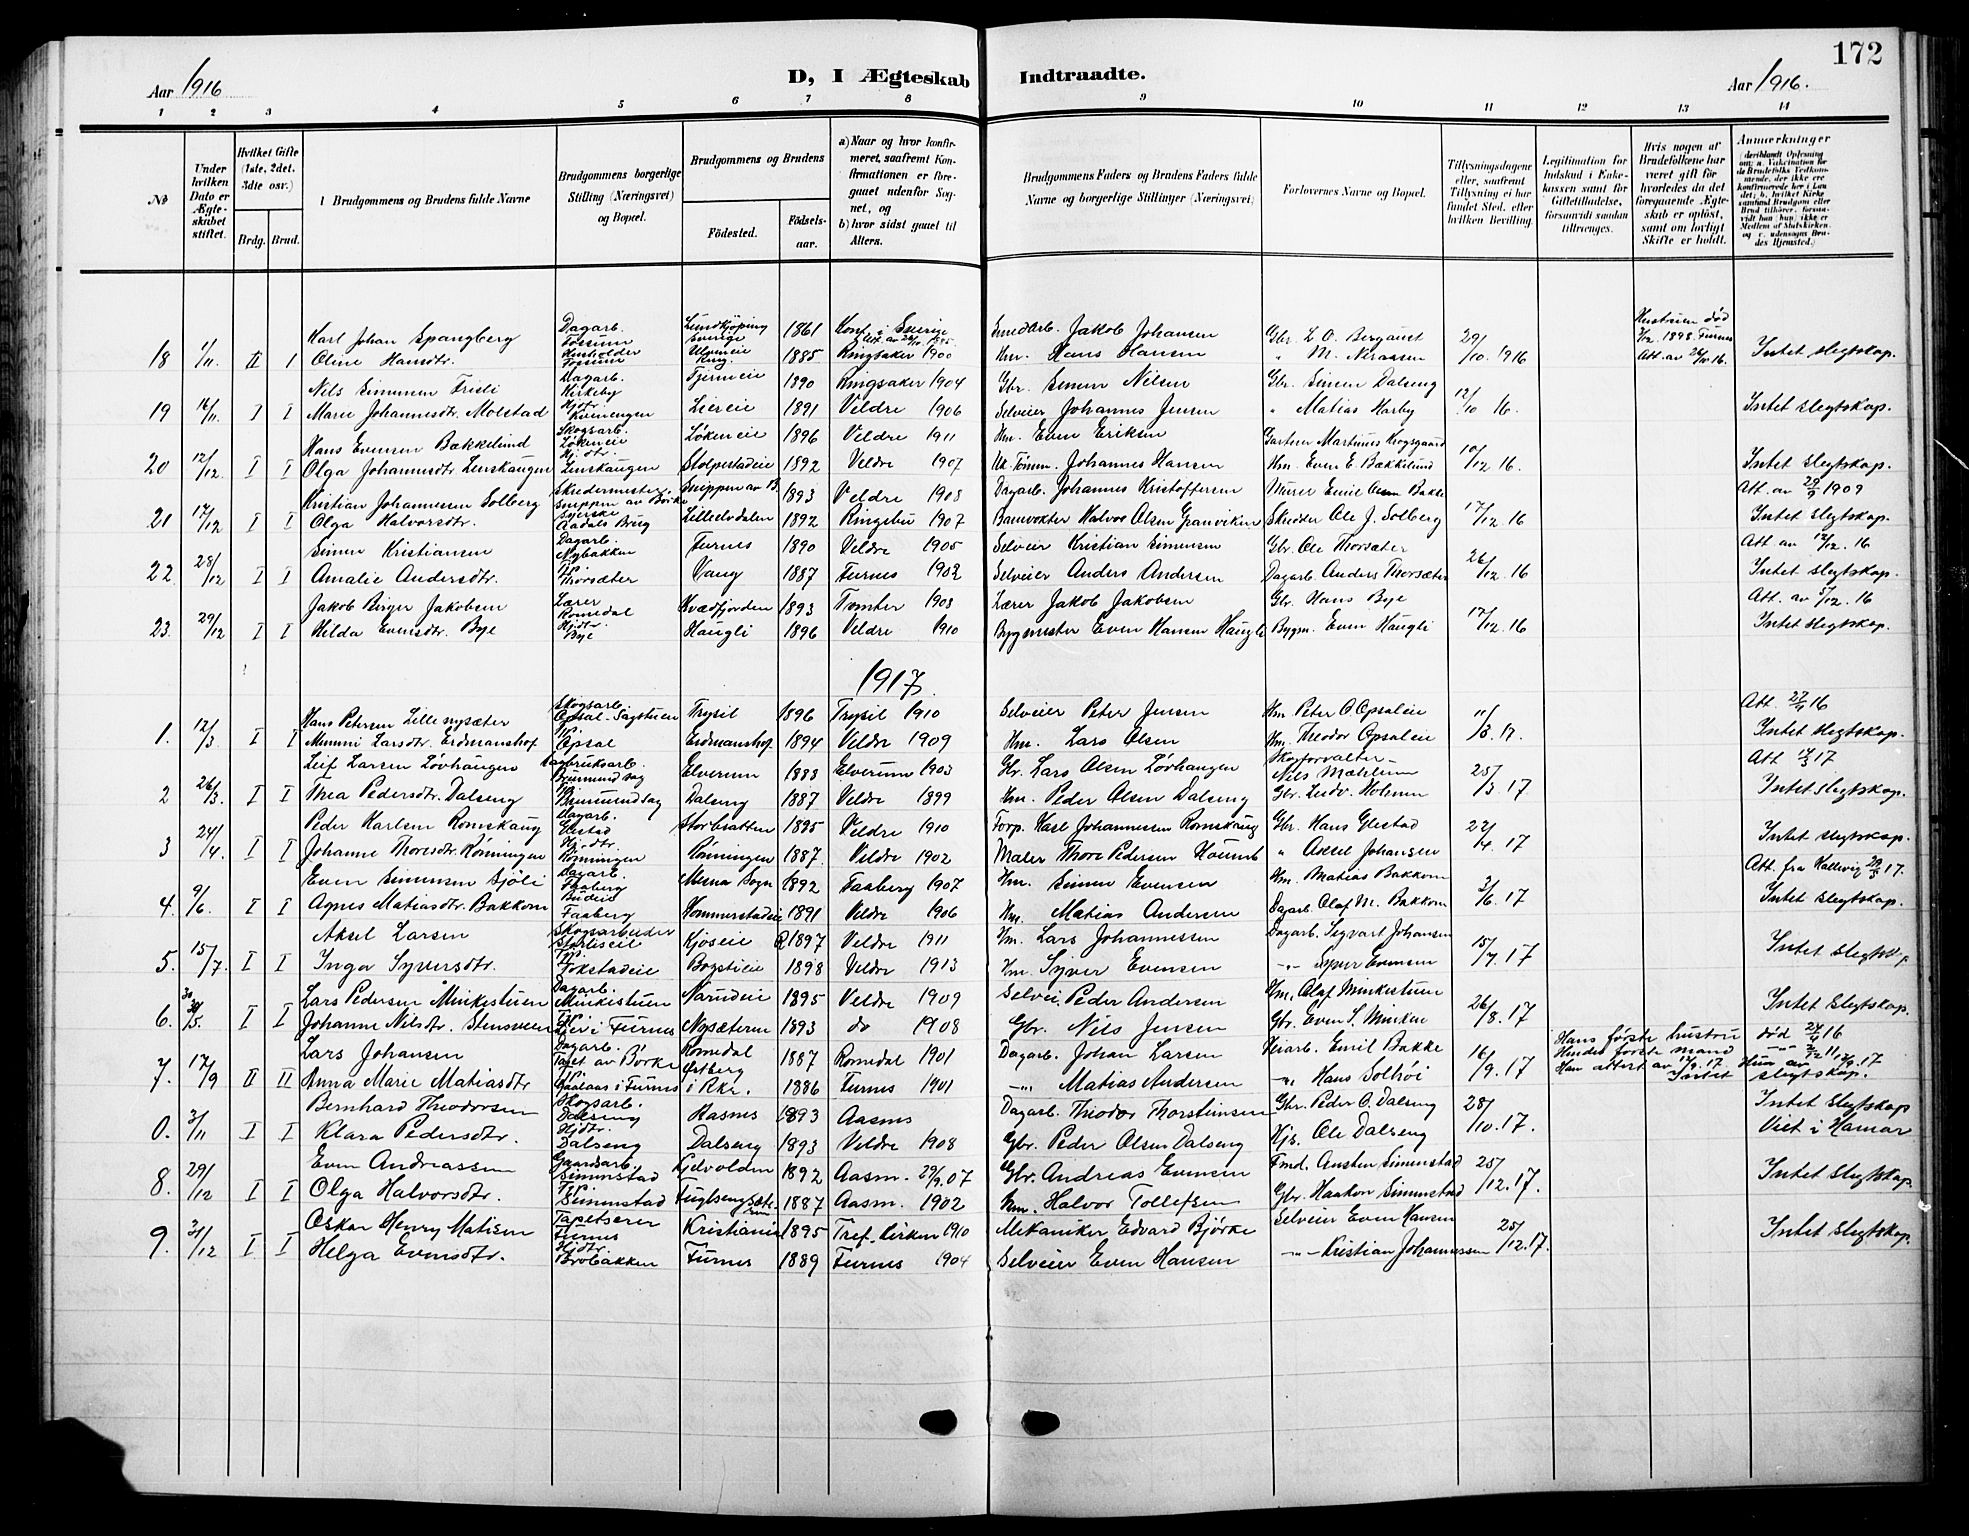 172
Aar 1916
D, I Ægteskab Indtraadte.
Aar 1916.
1 2 3 4 5 6 7 8 9 10 11 12 13 14
No
Under hvilken Dato er Ægteskabet stiftet.
Hvilket Gifte (1ste, 2det, 3die osv.)
Brdg. Brud.
Brudgommens og Brudens fulde Navne
Brudgommens borgerlige Stilling (Næringsvei) og Bopæl.
Brudgommens og Brudens
Fødested. Fødselsaar.
a) Naar og hvor konfirmeret, saafremt Konfirmationen er foregaaet udenfor Sognet, og
b) hvor sidst gaaet til Alters.
Brudgommens Faders og Brudens Faders fulde Navne og borgerlige Stillinger (Næringsvei)
Forlovernes Navne og Bopæl.
Tillysningsdagene eller, saafremt Tillysning ei har fundet Sted, efter hvilken Bevilling.
Legitimation for Indskud i Enkekassen samt for Giftetilladelse, forsaavidt saadan tiltrænges.
Hvis nogen af Brudefolkene har været gift før hvorledes da det foregaaende Ægteskab er opløst, samt om lovligt Skifte er holdt.
Anmerkninger
Karl Johan Spangberg Dagarb. Fossum Lundkjöping Sverige 1861 Konf. i Sverige Smedarb. Jakob Johansen Gbr. L. O. Berganst 29/ Hustruen död
18 1/11. II I Oline Hansdtr. Husholder Fossum Ulveneie Ring. 1885 Ringsaker 1900 Hm. Hans Hansen " M. Nilsasen /10. 1916 Intet slegtskap.
Nils Simensen Frisli Dagarb. Kirkeby Tjerneie 1890 Ringsaker 1904 Gbr. Simen Nilsen Gbr. Simen Dalseng 12/
19 16/11. I I Marie Johannesdtr. Molstad Hjdtr. Liereie 1891 Veldre 1906 Selveier Johannes Jensen " Matias Harby /10 16. Intet slegtskap.
Hans Evensen Bækkelund Skogsarb. Løkeneie Løkeneie 1896 Veldre 1911 Hm. Even Eriksen Gartner Martinus Krogsgaard 10/
20 12/12 I I Olga Johannesdtr. Lenskaugen Hjdtr. Lenskaugen Stolpestadeie 1892 Veldre 1907 Johannes Hansen Hm. Even E. Bækkelund /12 16. Intet slegtskap.
Kristian Johannessen Solberg Skredermester Snippen av Börke Snippen av B. 1893 Veldre 1908 Dagarb. Johannes Kristoffersen Murer Emil Olsen Bakke Att. av 29/9 1909
21 17/12 I I Olga Halvorsdtr. Syerske Aadals Brug Lilleelvdalen 1892 Ringebu 1907 Banevokter Halvor Olsen Granviken Skredder Ole J. Solberg 17/12 16 Intet slegtskap.
Simen Kristiansen Dagarb. Nybakken Furnes 1890 Veldre 1905 Selveier Kristian Simensen Gbr. Ole Thorsæter Att. av 12/12. 16
22 28/12 I I Amalie Andersdtr. Tp. Thorsæter Vang 1887 Furnes 1902 Selveier Anders Andersen Dagarb. Anders Thorsæter 26/12. 16 Intet slegtskap.
Jakob Birger Jakobsen Lærer Romedal Kvædfjorden 1893 Tromter 1908 Lærer Jakob Jakobsen Gbr. Hans Bye Att. av 5/12. 16
23. 29/12 I I Hilda Evensdtr. Bye Hjdtr. Bye Haugli 1896 Veldre 1910 Bygmester Even Hansen Haugli Bygm. Even Haugli 17/12. 16 Intet slegtskap.
1917.
Hans Petersen Lillenysæter Skogsarb. Opsal-Sagstuen Trysil 1896 Trysil 1910 Selveier Peter Jensen Hm Peter O Opsaleie 11/ Att. 27/9 16
1. 12/3 I I Mimmi Larsdtr. Erdmanshof Tp. Opsal Erdmanshof 1894 Veldre 1909 Hm. Lars Olsen Hm. Theodor Opsaleie /3. 17. Intet slegtskap.
Leif Larsen Løvhaugen Sagbruksarb. Brumund sag Elverum 1888 Elverum 1903 Gbr. Lars Olsen Løvhaugen Skogforvalter Nils Mæhlum 25/ Att 12/3 17
2 26/3. I I Thea Pedersdtr. Dalseng Tp. Brumundsag Dalseng 1887 Veldre 1899 Hm. Peder Olsen Dalseng Gbr. Ludv. Holmen /3. 17 Intet slegtskap.
Peder Karlsen Romskaug Dagarb. Glestad Storbratten 1895 Veldre 1910 Forp. Karl Johannessen Romskaug Gbr. Hans Glestad 22/
3 24/4. I I Johanne Thoresdtr. Rönningen Hjdtr. Rönningen Rönningen 1887. Veldre 1902 Maler Thore Pedersen " Aksel Johansen /4. 17 Intet slegtskap.
Even Simensen Sjöli Dagarb. Faaberg Mesna Sogn 1892 Faaberg 1907 Hm. Simen Evensen Hm. Matias Bakkom 3/ Att. fra Kallevig 29/5 17.
4. 9/6. I I Agnes Matiasdtr. Bakkom Budeie Faaberg Kommerstadeie 1891 Veldre 1906 Hm. Matias Andersen Dagarb. Olaf M. Bakkom /6. 17 Intet slegtskap.
Aksel Larsen Skogsarbeider Kjoseie 1897 Veldre 1911 Hm. Lars Johannessen Dagarb. Segvart Johansen 15/
5. 15/7. I I Inga Syversdtr. Tp. Gokstadeie Bogstieie 1898 Veldre 1913 Hm. Syver Evensen -"- Syver Evensen /7. 17 Intet slegtskp.
Lars Pedersen Minkestuen Dagarb. Minkestuen Narudeie 1895 Veldre 1909 Selvei. Peder Andersen Hm. Olaf Minkestuen 26/
6. 30/5. I I Johanne Nilsdtr. Stensveen Tp. i Furnes Nysæterm 1893 do 1908 Gbr. Nils Jensen Gbr. Even S. Minken /8. 17 Intet slegtskap.
Lars Johansen Dagarb. Taset av Börke Romedal 1887 Romedal 1901 Dagarb. Johan Larsen Veiarb. Emil Bakke 16/ Hans første hustru død 24/4 16
7. 17/9 II II Anna Marie Matiasdtr Tp. Gaalaas i Furnes Østberg i Rke. 1886 Furnes 1901 -"- Matias Andersen -"- Hans Solhøi /9. 17 Hendes første mand -"- 2/12 11. Han attest av 12/9. 17. Hun av 3/9. 17 Intet slegtskap.
Bernhard Theodorsen Skogsarb. Dalseng Kasnes 1893 Aasnes Dagarb. Theodor Thorsteinsen Gbr. Peder O. Dalseng 28/ Intet slegtskap
0. 3/11 I I Klara Pedersdtr. Hjdtr. Dalseng Dalseng 1893 Veldre 1908 Gbr. Peder Olsen Dalseng Kjs. Ole Dalseng /10. 17. Viet i Hamar
Even Andreassen Gaardsarb. Simenstad Gjelvolden 1892 Aasm. 29/9. 07 Gbr. Andreas Evensen Fmd. Austen Simenstad 25/
8. 29/12 I I Olga Halvorsdtr. Tp. Simenstad 1887 Aasm. 1902 Hm. Halvor Tollefsen Gbr. Haakon Simenstad /12. 17. Intet slegtskap.
Oskar Henry Matisen Tapetserer Furnes Kristiania 1895 Tref. kirken 1910 Mekaniker Edvard Björke Selveier Even Hansen 25/
9. 31/12 I I Helga Evensdtr. Hjdtr. Brobakken Furnes 1889 Furnes 1904 Selveier Even Hansen -"- Kristian Johannessen /12. 17. Intet slegtskap.